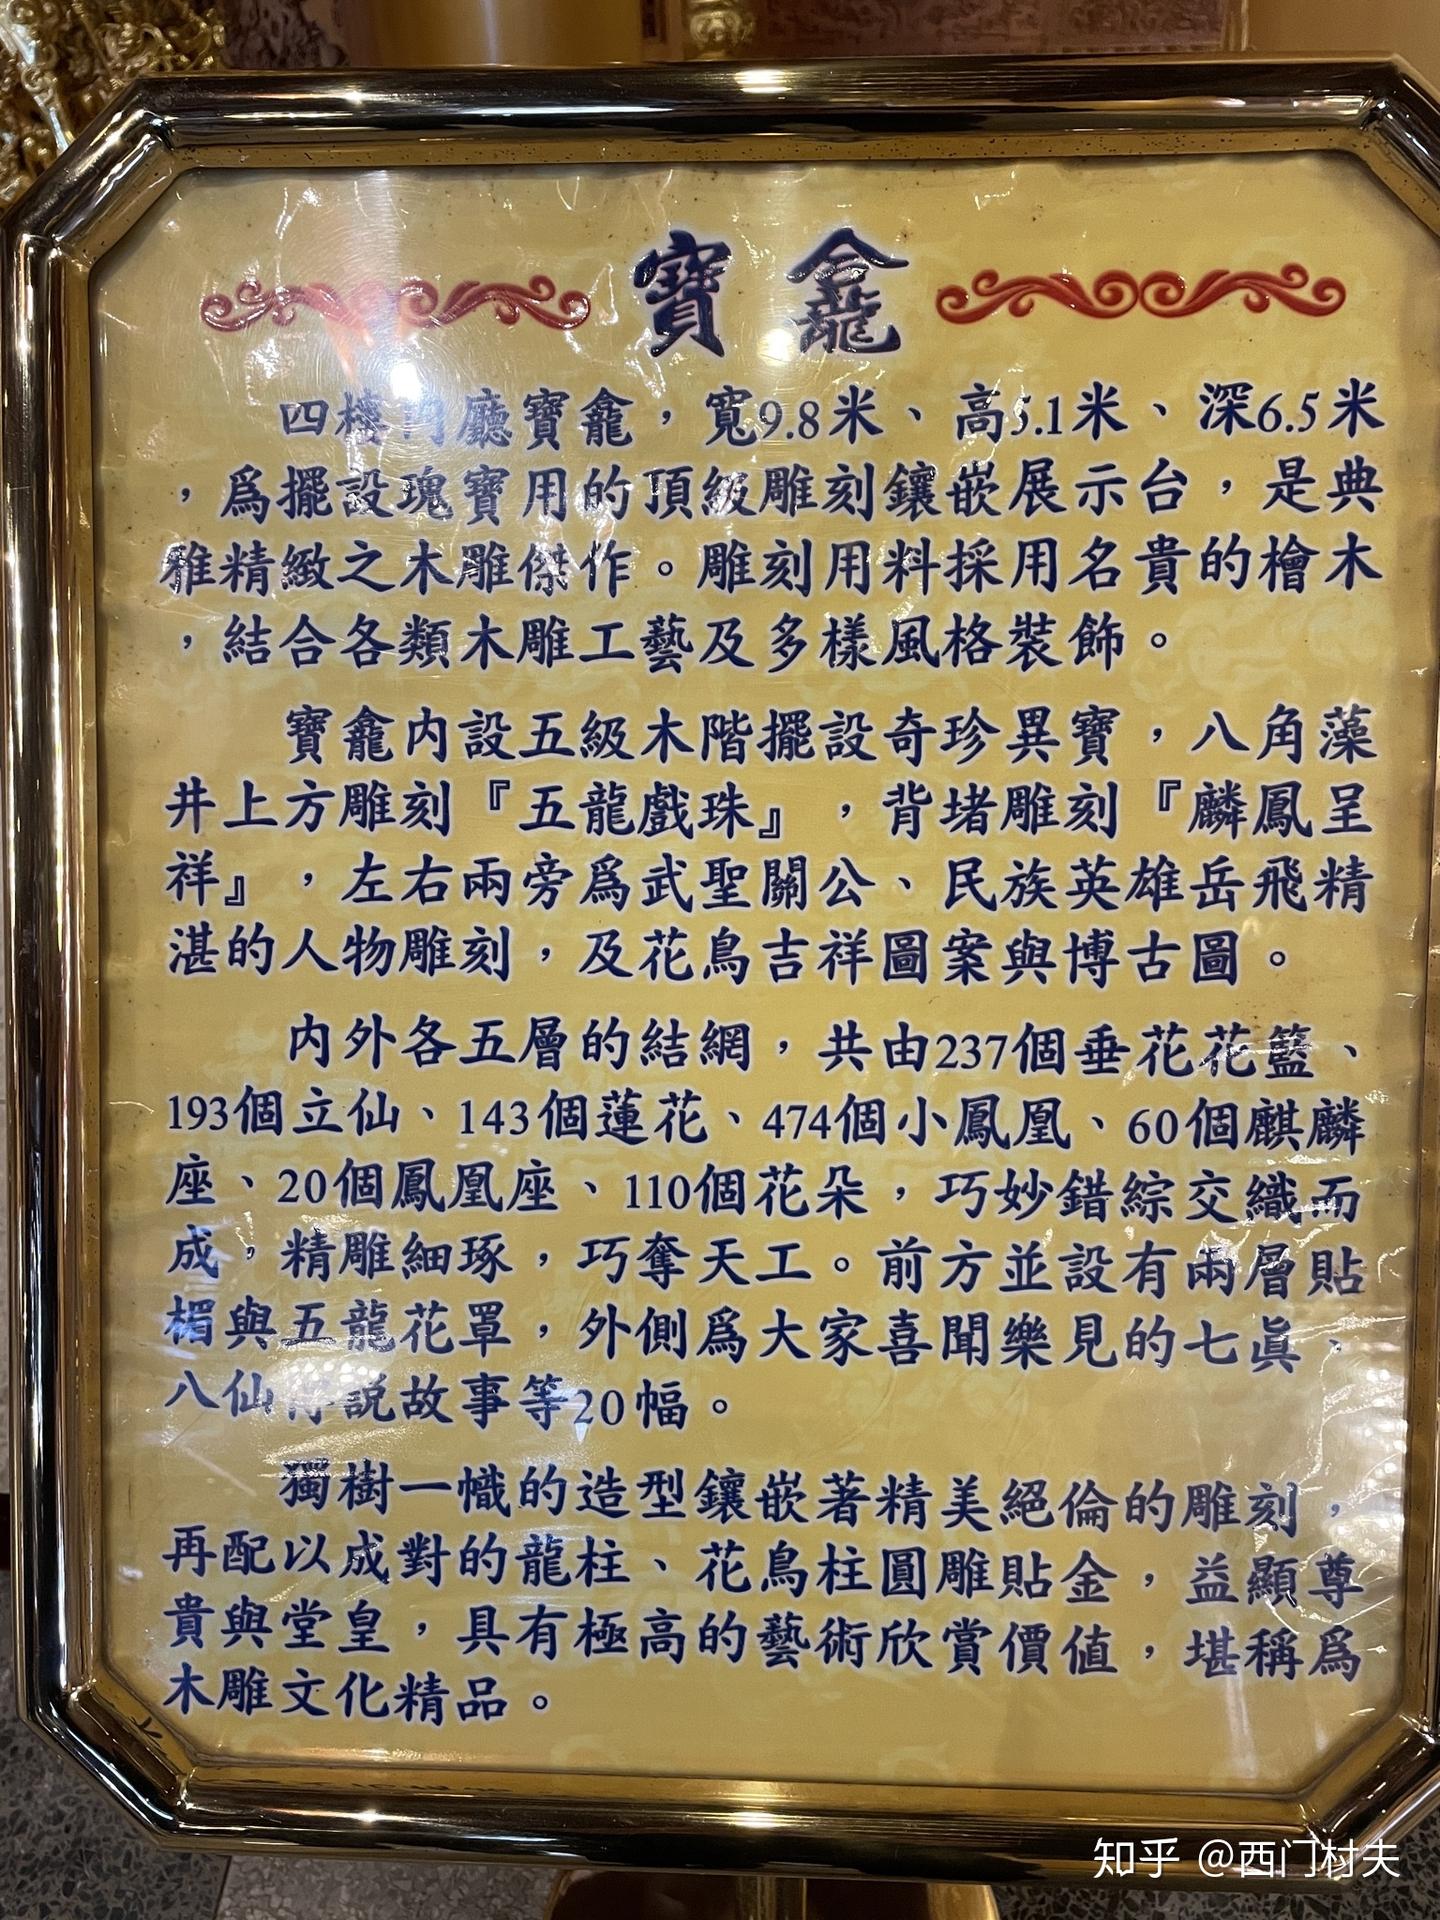 寶龕
四樓內廳寶龕，寬9.8米、高5.1米、深6.5米
，為擺設瑰寶用的頂級雕刻鑲嵌展示台，是典
雅精緻之木雕傑作。雕刻用料採用名貴的檜木
，結合各類木雕工藝及多樣風格裝飾。
寶龕內設五級木階擺設奇珍異寶，八角藻
井上方雕刻『五龍戲珠』，背堵雕刻『麟鳳呈
祥』，左右兩旁為武聖關公、民族英雄岳飛精
湛的人物雕刻，及花鳥吉祥圖案與博古圖。
內外各五層的結網，共由237個垂花花籃、
193個立仙、143個蓮花、474個小鳳凰、60個麒麟
座、20個鳳凰座、110個花朵，巧妙錯綜交織而
成，精雕細琢，巧奪天工。前方並設有兩層貼
楣與五龍花罩，外側為大家喜聞樂見的七真、
八仙傳說故事等20幅。
獨樹一幟的造型鑲嵌著精美絕倫的雕刻，
再配以成對的龍柱、花鳥柱圓雕貼金，益顯尊
貴與堂皇，具有極高的藝術欣賞價值，堪稱為
木雕文化精品。
知乎 @西门村夫